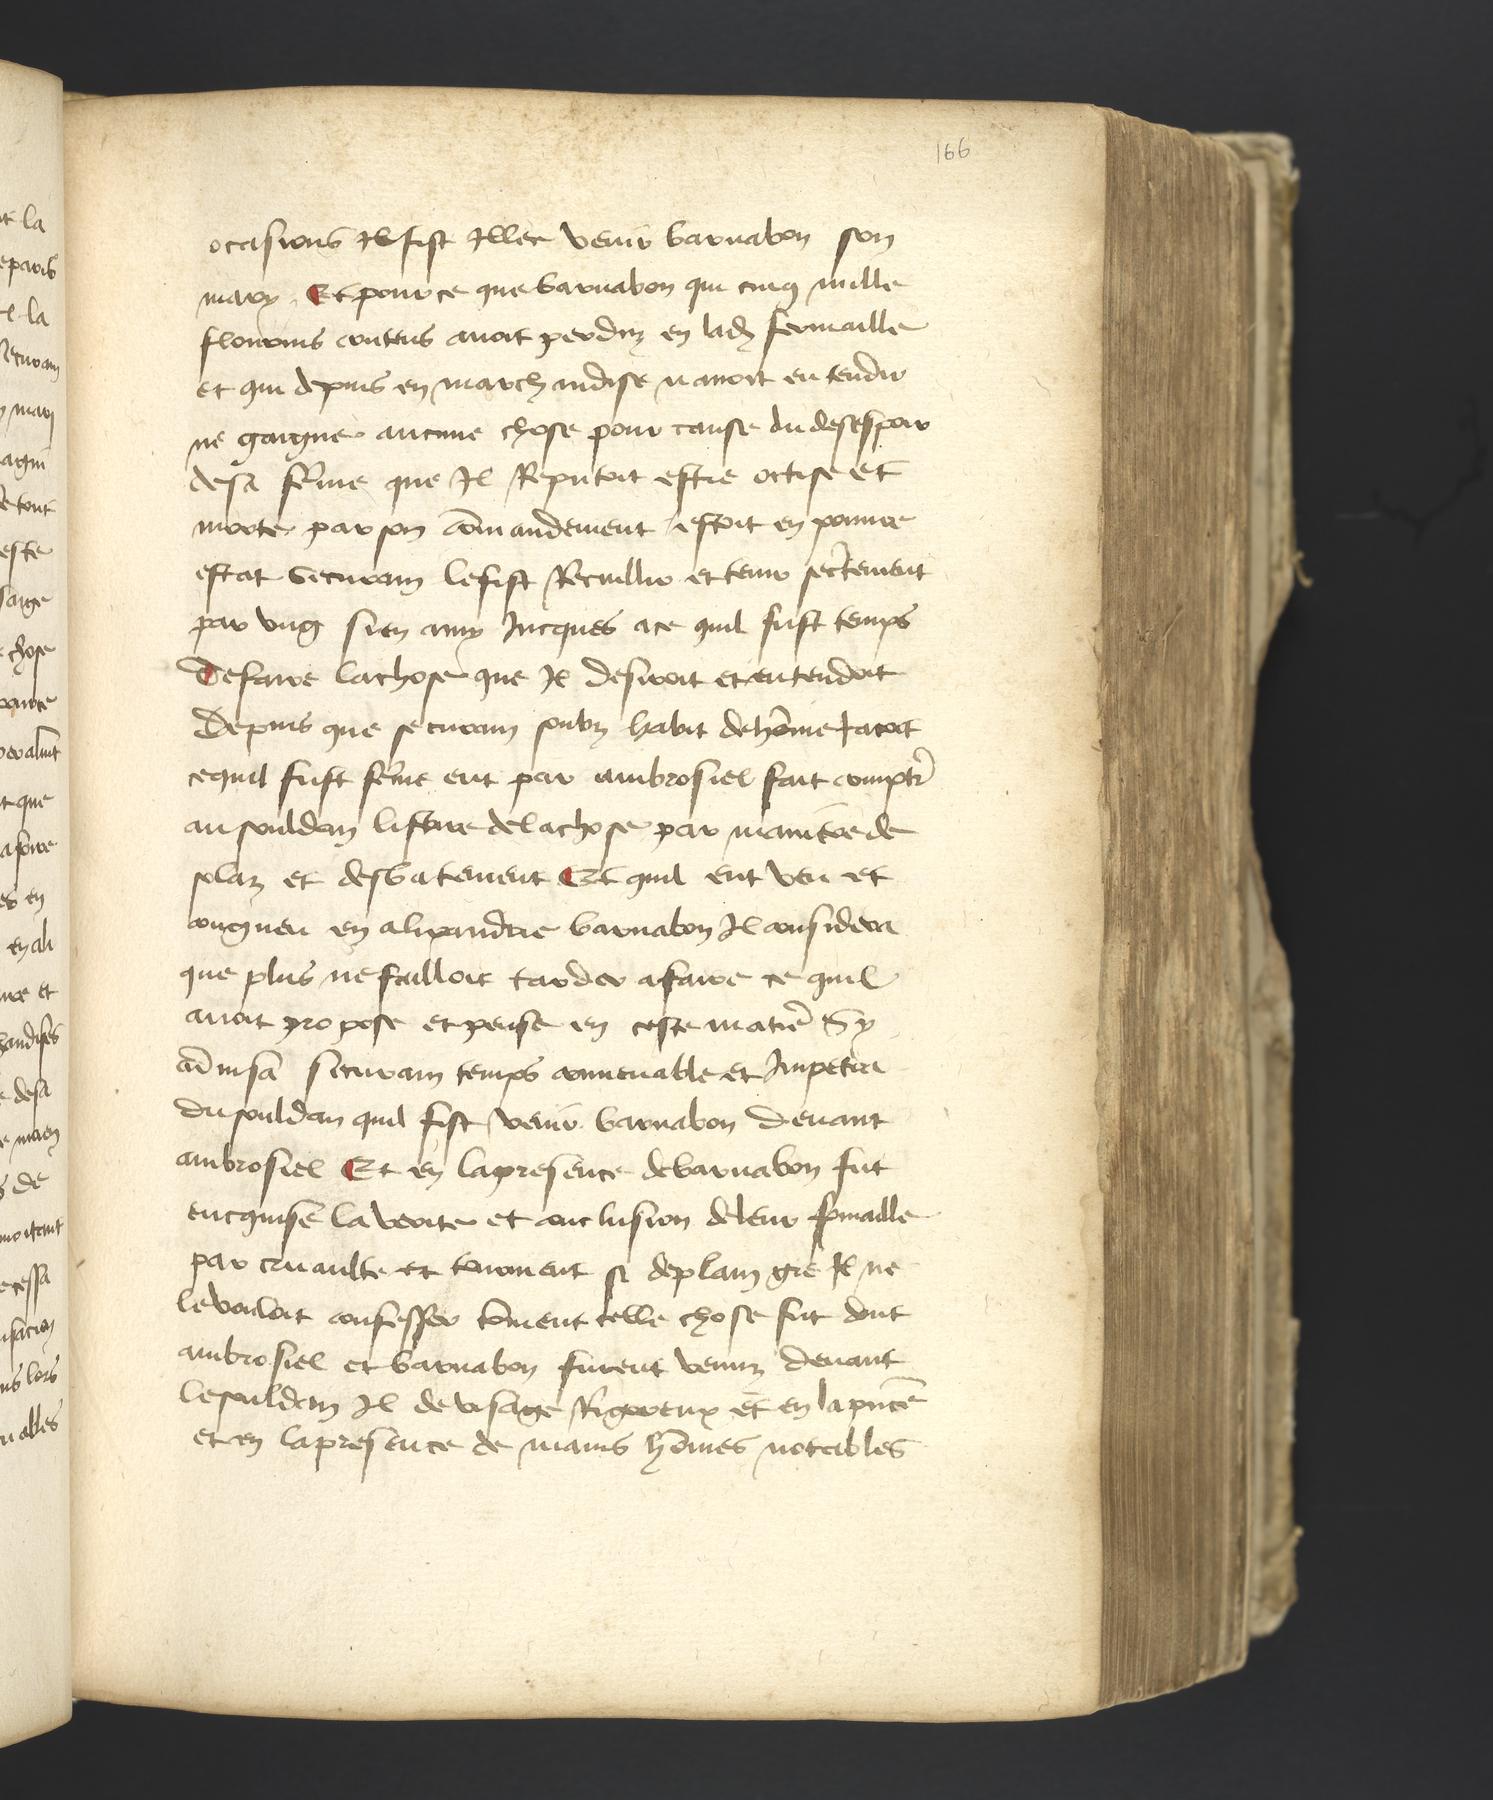 166
ocasions Il fist Illec venir barnabon son
mary. Et pource que barnabon qui cinq mille
flourins contens auoit perduz en lad fermaille
et qui depuis en marchandise nauoit entendu
ne gaigne aucune chose pour cause du desespoir
de sa fem̄e que Il Reputoit estre occise et
morte par son com̄andement estoit en poure
estat Securam le fist Recuillir et tenir secretement
par vng sien amy Jucques a ce quil fust temps
De faire la chose que Il desiroit et entendoit
Depuis que securam soubz habit de hom̄e
ce quil fust fem̄e eut par ambrosiel fait compter
au souldan listoire de la chose par maniere de
solaz et desbatement Et quil eut veu et
congneu en alixandrie barnabon Il considera
que plus ne failloit tarder a faire ce quil
auoit propose et pense en ceste matiere Sy
aduisa securam temps conuenable et Impetra
du souldan quil fist venir barnabon Deuant
ambrosiel Et en la presence de barnabon fut
encquise la verite et conclusion de leur fermaille
par cruaulte et tourment se de plain gre Il ne
le vouloit confesser com̄ent telle chose fut dont
ambrosiel et barnabon furent venuz deuant
le souldan Il de visage Rigoreux et en la pn̄ce
et en la presence de mains hom̄es notables